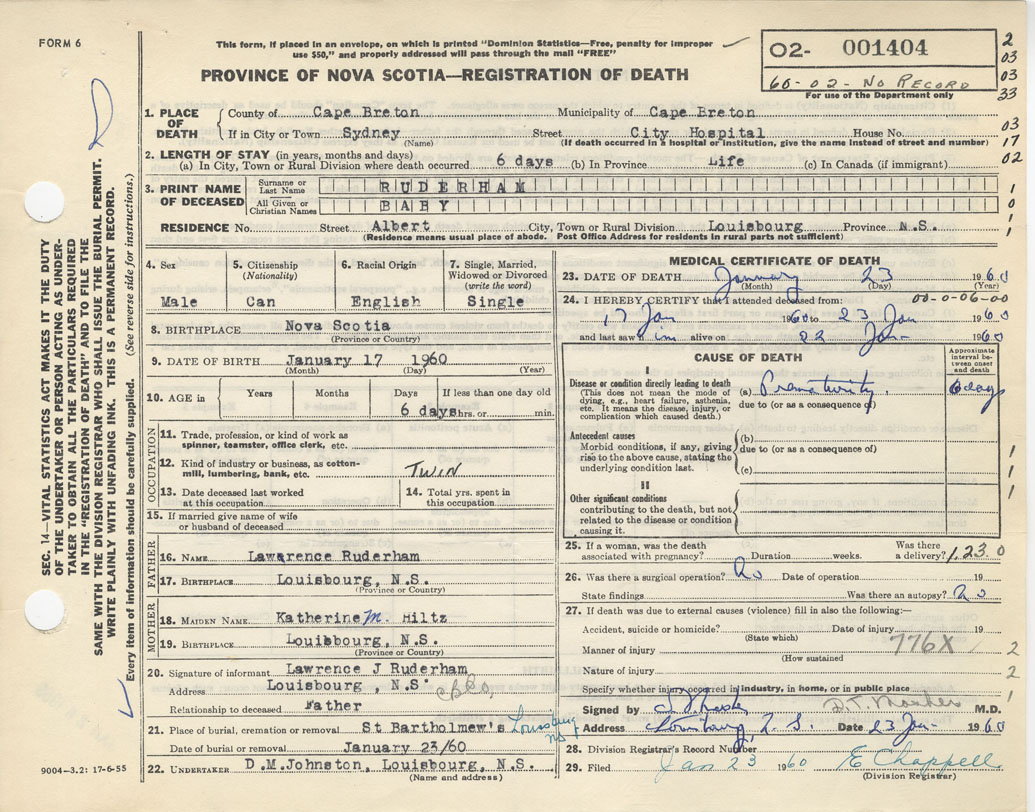 FORM 6
This form, if placed in an envelope, on which is printed "Dominion Statistics—Free, penalty for improper
use $50," and properly addressed will pass through the mail "FREE"
PROVINCE OF NOVA SCOTIA—REGISTRATION OF DEATH
02- 001404
60-02- NO RECORD
For use of the Department only
2
03
03
33
03
17
02
1. PLACE OF DEATH
County of Cape Breton Municipality of Cape Breton
If in City or Town Sydney Street City Hospital House No.
(Name) (If death occurred in a hospital or institution, give the name instead of street and number)
2. LENGTH OF STAY (in years, months and days)
(a) In City, Town or Rural Division where death occurred 6 days (b) In Province Life (c) In Canada (if immigrant)
3. PRINT NAME OF DECEASED
Surname or Last Name RUDERHAM
All Given or Christian Names BABY
1
0
1
1
RESIDENCE No. Street Albert City, Town or Rural Division Louisbourg Province N.S.
(Residence means usual place of abode. Post Office Address for residents in rural parts not sufficient)
4. Sex
Male
5. Citizenship
(Nationality)
Can
6. Racial Origin
English
7. Single, Married, Widowed or Divorced
(write the word)
Single
8. BIRTHPLACE Nova Scotia
(Province or Country)
9. DATE OF BIRTH January 17 1960
(Month) (Day) (Year)
10. AGE in Years Months Days If less than one day old
6 days hrs. or min.
OCCUPATION
11. Trade, profession, or kind of work as
spinner, teamster, office clerk, etc.
12. Kind of industry or business, as cotton-
mill, lumbering, bank, etc. TWIN
13. Date deceased last worked
at this occupation
14. Total yrs. spent in
this occupation
15. If married give name of wife
or husband of deceased
FATHER
16. NAME Lawrence Ruderham
17. BIRTHPLACE Louisbourg, N.S.
(Province or Country)
MOTHER
18. MAIDEN NAME Katherine M. Hiltz
19. BIRTHPLACE Louisbourg, N.S.
(Province or Country)
20. Signature of informant Lawrence J Ruderham
Address Louisbourg , N.S.
Relationship to deceased Father
21. Place of burial, cremation or removal St Bartholmew's Louisburg NS
Date of burial or removal January 23/60
22. UNDERTAKER D.M.Johnston, Louisbourg, N.S.
(Name and address)
MEDICAL CERTIFICATE OF DEATH
23. DATE OF DEATH January 23 1960
(Month) (Day) (Year)
24. I HEREBY CERTIFY that I attended deceased from: 00-0-06-00
17 Jan 1960 to 23 Jan 1960
and last saw him alive on 22 Jan 1960
CAUSE OF DEATH
Approximate interval between onset and death
I
Disease or condition directly leading to death
(This does not mean the mode of
dying, e.g., heart failure, asthenia,
etc. It means the disease, injury, or
complication which caused death.)
(a) Prematurity 6 days
due to (or as a consequence of)
Antecedent causes
Morbid conditions, if any, giving
rise to the above cause, stating the
underlying condition last.
(b)
due to (or as a consequence of)
(c)
II
Other significant conditions
contributing to the death, but not
related to the disease or condition
causing it.
1
1
1
25. If a woman, was the death
associated with pregnancy? Duration weeks. Was there
a delivery? 1,23 0
26. Was there a surgical operation? No Date of operation 19
State findings Was there an autopsy? No
27. If death was due to external causes (violence) fill in also the following:—
Accident, suicide or homicide? Date of injury 19
(State which)
Manner of injury 776X
(How sustained
Nature of injury
2
2
1
Specify whether injury occurred in industry, in home, or in public place
Signed by M.D.
Address Louisburg N.S. Date 23 Jan 1960
28. Division Registrar's Record Number
29. Filed Jan 23 1960 E Chappell
(Division Registrar)
SEC. 14—VITAL STATISTICS ACT MAKES IT THE DUTY
OF THE UNDERTAKER OR PERSON ACTING AS UNDER-
TAKER TO OBTAIN ALL THE PARTICULARS REQUIRED
IN THE "REGISTRATION OF DEATH" AND TO FILE THE
SAME WITH THE DIVISION REGISTRAR WHO SHALL ISSUE THE BURIAL PERMIT.
WRITE PLAINLY WITH UNFADING INK. THIS IS A PERMANENT RECORD.
Every item of information should be carefully supplied. (See reverse side for instructions.)
9004—3.2: 17-6-55